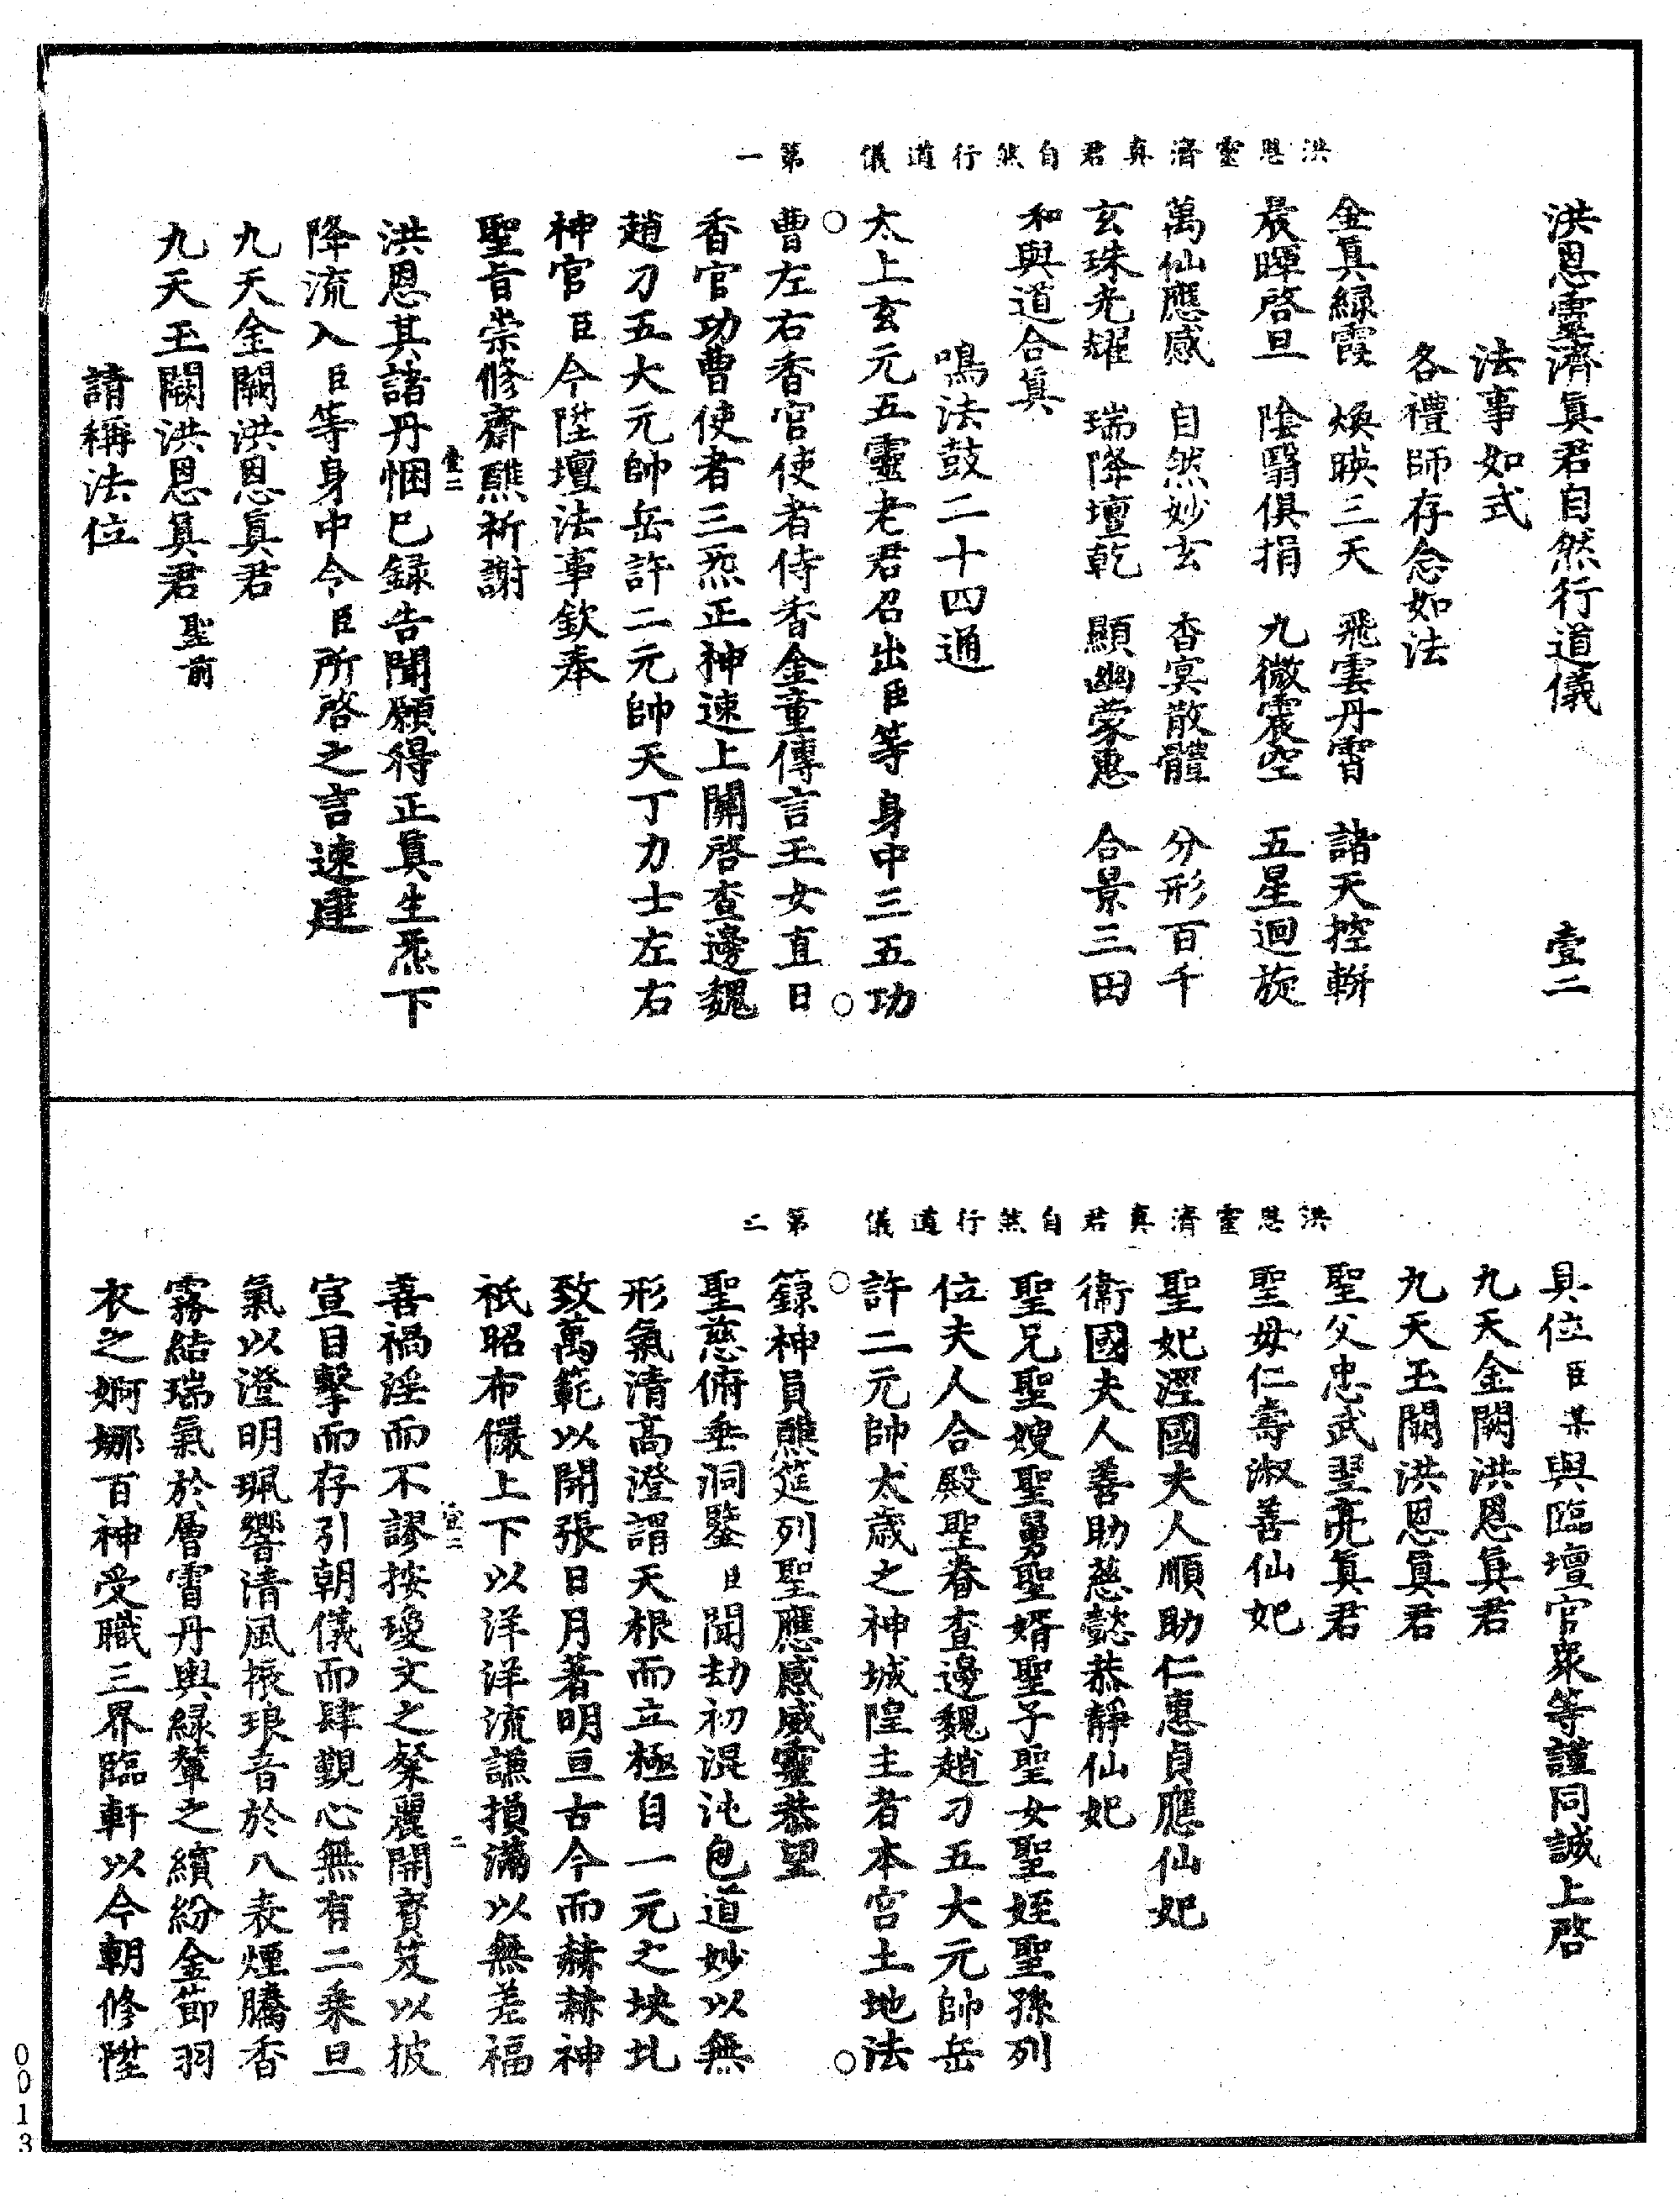 洪恩靈濟真君自然行道儀　第一
洪恩靈濟眞君自然行道儀　壹二
法事如式
各禮師存念如法
金眞緑霞　煥暎三天　飛雲丹霄　諸天控輧
晨暉啓旦　陰翳俱捐　九微震空　五星迴旋
萬仙應感　自然妙玄　杳㝠散體　分形百千
玄珠光耀　瑞降壇乾　顯幽蒙惠　合景三田
和與道合眞
鳴法鼓二十四通
太上玄元五靈老君召出臣等身中三五功
曹左右香官使者侍香金童傳言玉女直日
香官功曹使者三炁正神速上開啓查邊魏
趙刀五大元帥岳許二元帥天丁力士左右
神官臣今陞壇法事欽奉
聖旨崇修齋醮祈謝
洪恩其諸丹悃已録告聞願得正眞生炁下
降流入臣等身中令臣所啓之言速達
九天金闕洪恩眞君
九天玉闕洪恩眞君聖前
請稱法位
壹二
洪恩靈濟真君自然行道儀　第二
具位臣某與臨壇官衆等謹同誠上啓
九天金闕洪恩眞君
九天玉闕洪恩眞君
聖父忠武翌亮眞君
聖母仁壽淑善仙妃
聖妃淫國夫人順助仁惠貞應仙妃
衛國夫人善助慈懿恭靜仙妃
聖兄聖嫂聖舅聖婿聖子聖女聖姪聖孫列
位夫人合殿聖眷查邊魏趙刀五大元帥岳
許二元帥太歲之神城隍主者本宫土地法
籙神員醮筵列聖應感威靈恭望
聖慈俯垂洞鑒臣聞劫初混沌包道妙以無
形氣清高澄謂天根而立極自一元之块圠
致萬範以開張日月著明亘古今而赫赫神
祇昭布儼上下以洋洋流謙損滿以無差福
善禍淫而不謬按瓊文之粲麗開寳笈以披
宣目擊而存引朝儀而肆覲心無有二乘旦
氣以澄明珮響清風振琅音於八表煙騰香
霧結瑞氣於層霄丹輿緑輦之繽紛金節羽
衣之婀娜百神受職三界臨軒以今朝修陞
壹二
二
0013